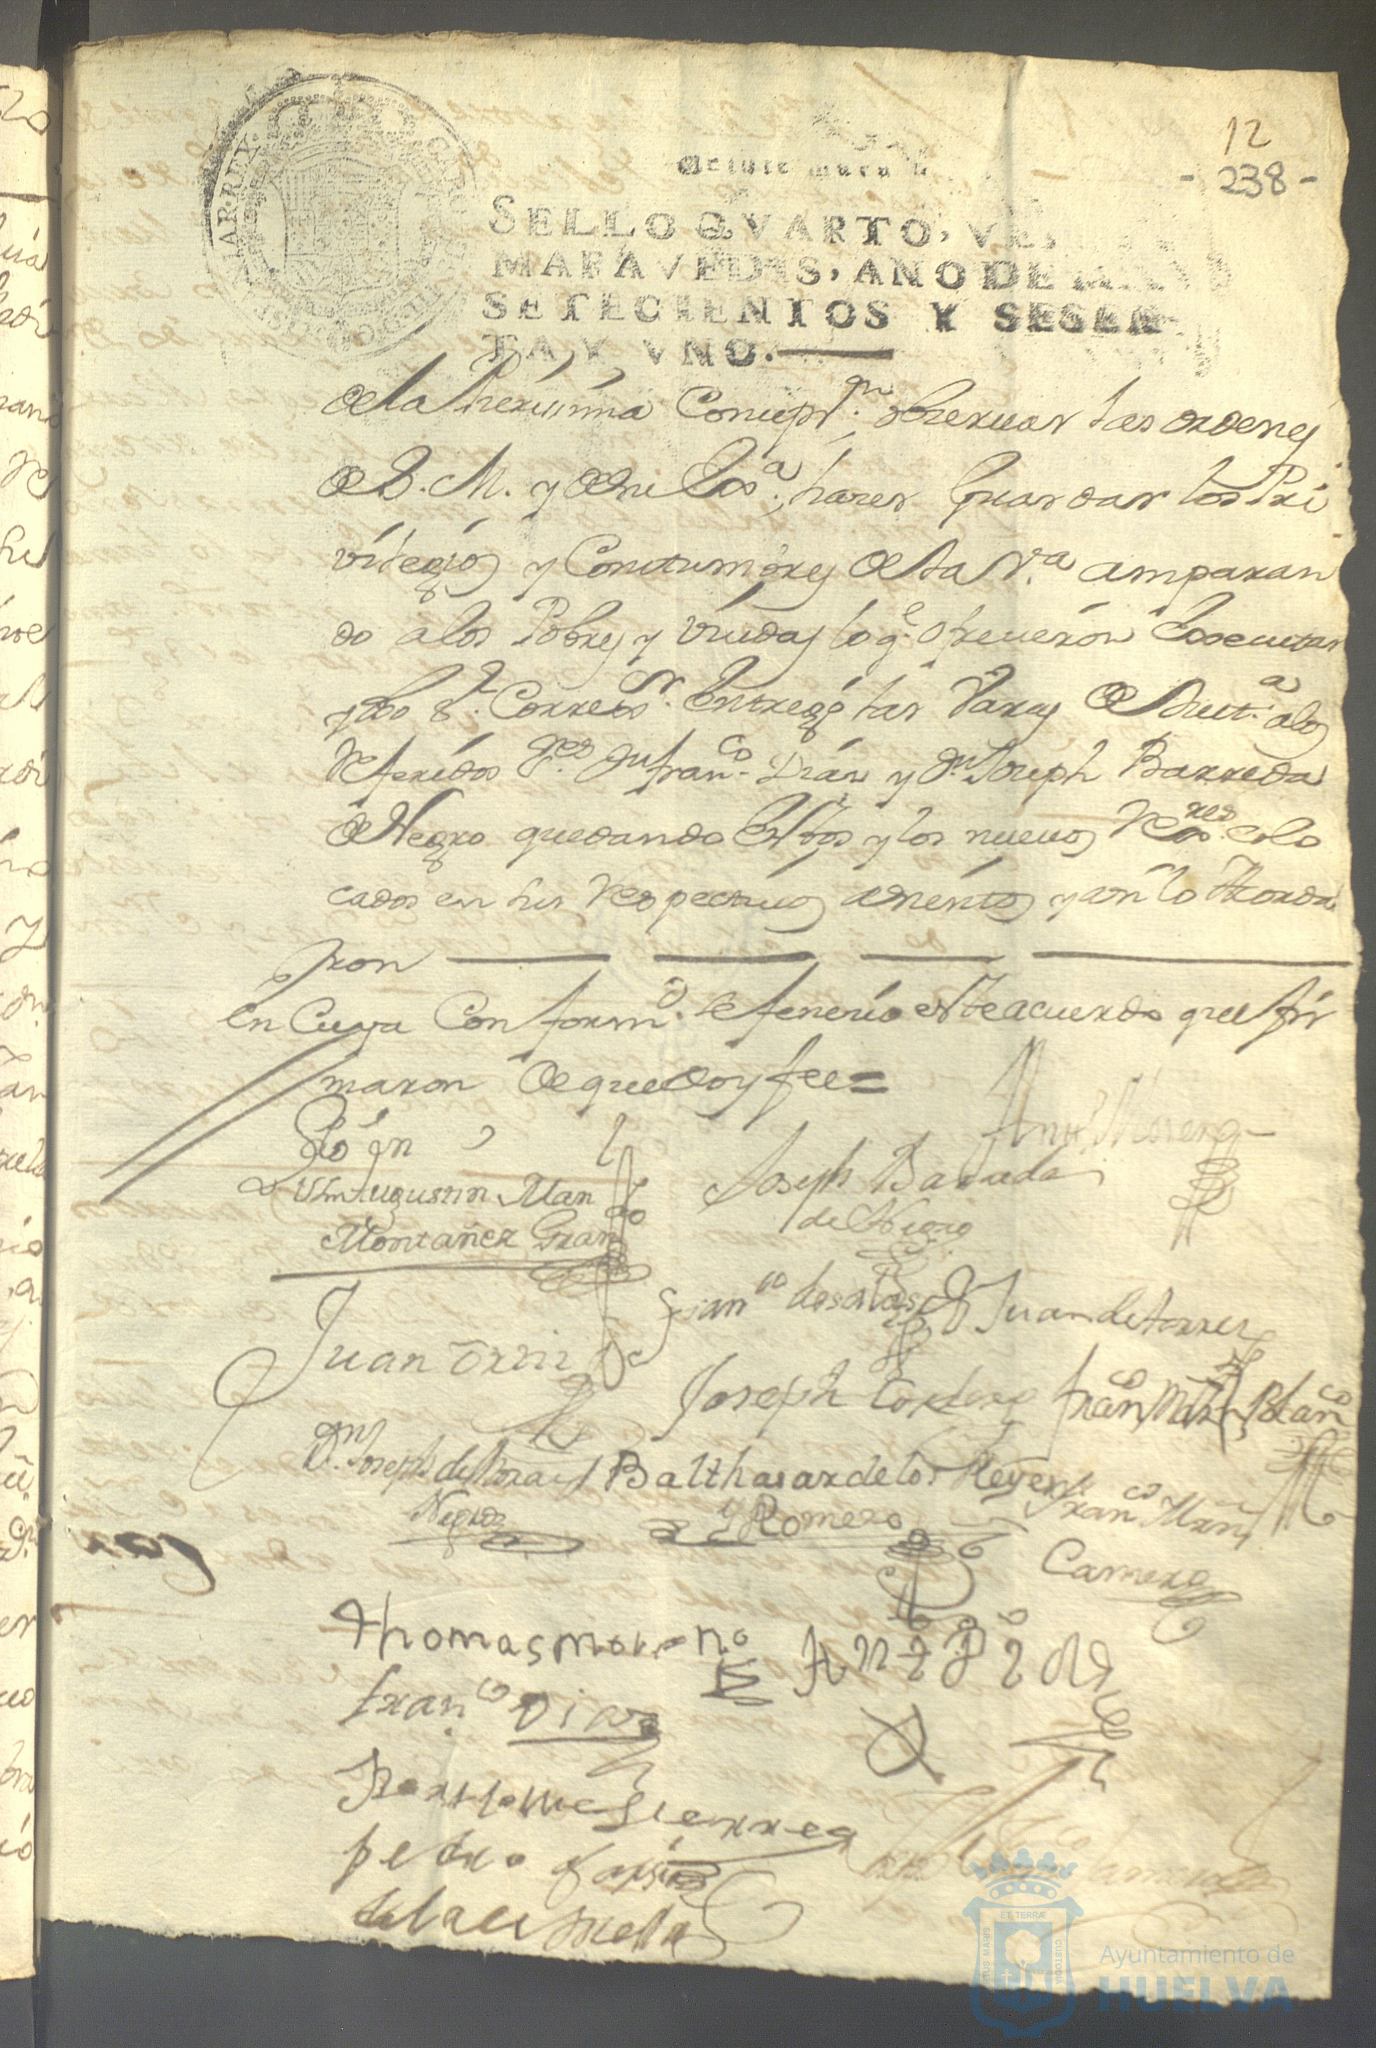 12
- 238 -
SELLO QVARTO, VE
MARAVEDIS, AÑO DE MIL
SETECIENTOS Y SESEN
TA Y VNO.
de la Purissima Concepn. observar las ordenes
de S. M. y de su Exa. hacer guardar los Pri
vilegios y Costumbres de esta Va. amparan
do a los Pobres y Viudas lo qe. ofrecieron Executar
y dho Sr. Corregr. Entregó las Varas de Justa. a los
referidos Sres. Dn. Franco. Diaz y Dn. Joseph Barreda
de Negro quedando Estos y los nuevos Regres. colo
cados en sus respectivos asientos y assi lo Acorda
ron
En Cuya Conformd. se fenecio este acuerdo que fir
maron de que doy fee=
Dn. Augustin Man
Montañez Gran
Antto. Moreno
Joseph Barreda
de Negro
Juan Ortiz
Franco. de salas
Juan de torres
Joseph Cordero
Franco Mrn Blanco
Dn. Joseph de
Negron
Balthasar de los Reyes
y Romero
Franco Mrn
Camero
thomas moreno
Franco Diaz
Bartolome Gierrez
pedro Garsia